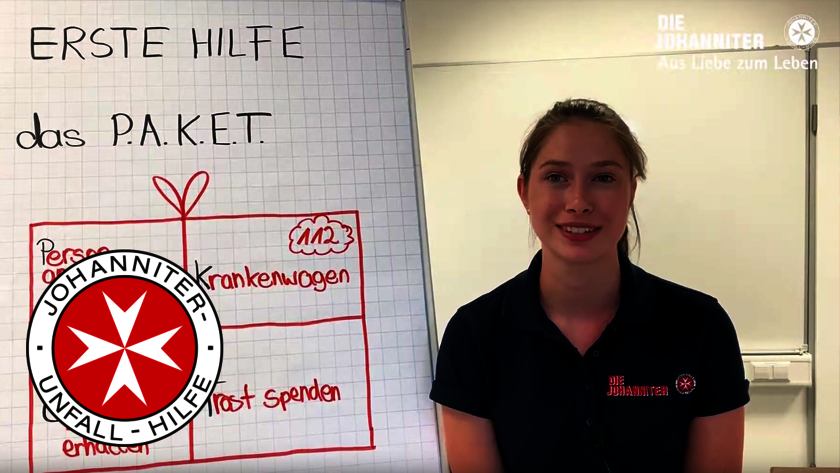 ERSTE HILFE
das P.A.K.E.T.
112
Krankenwagen
Trost spenden
erhalten
JOHANNITER-
UNFALL-HILFE
DIE
JOHANNITER
Aus Liebe zum Leben
DIE
JOHANNITER